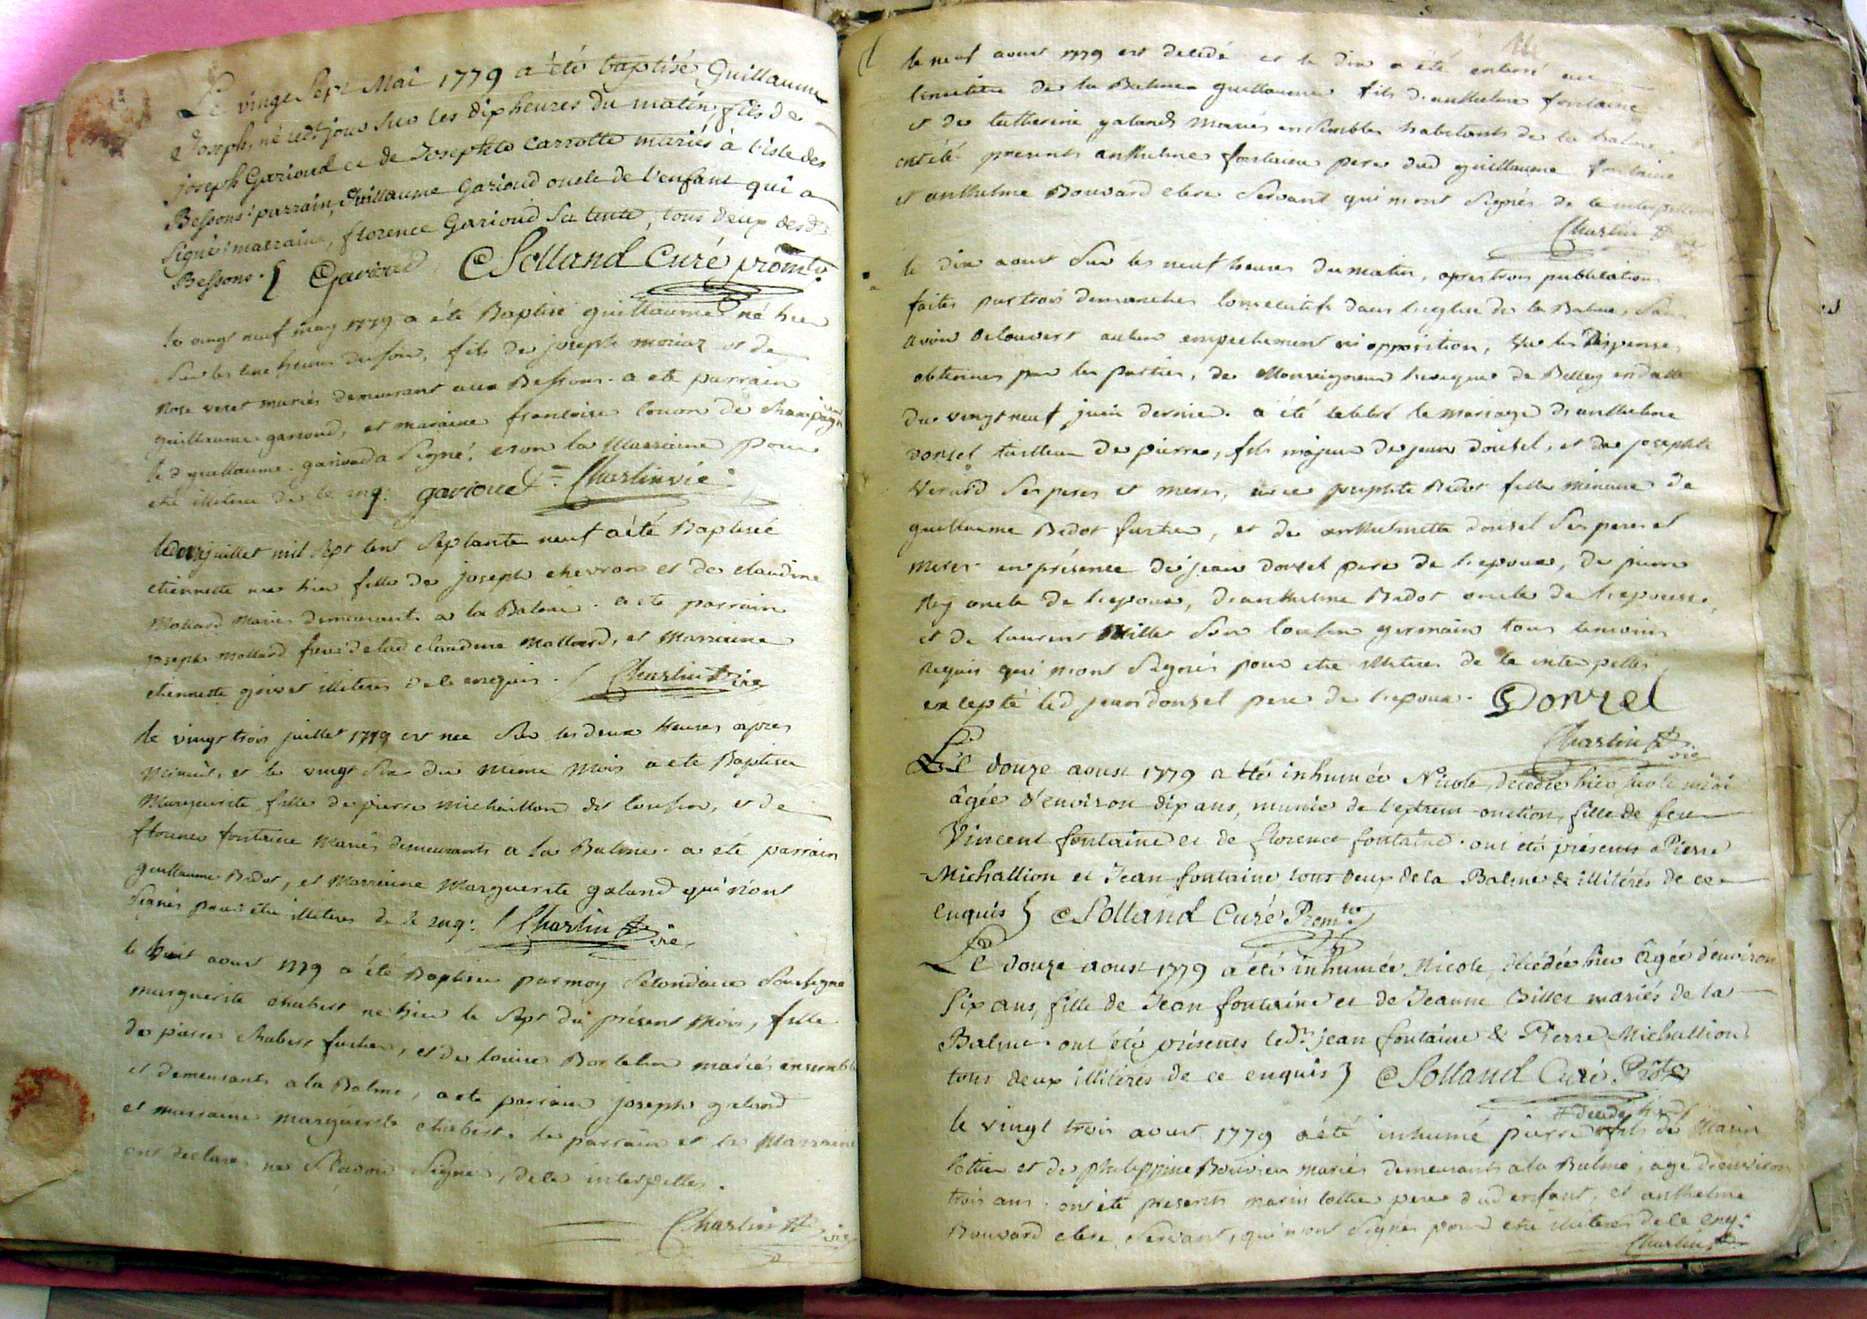 Le vingt Sept Mai 1779 a été baptisé Guillaume
Joseph, né led. jour sur les dix heures du matin, fils de
joseph Garioud et de Josephte Carrotte mariés à l'isle des
Bessons: parrain, Guillaume Garioud oncle de l'enfant qui a
signé: marraine, florence Garioud sa tante, tous deux desd.
Bessons. Garioud Solland Curé
le vingt neuf may 1779 a été Baptisé guillaume né hier
Sur les une heures du soir, fils de joseph moriaz et de
Rose veret mariés demeurant aux Bessons. a ete parrain
guillaume garioud, et maraine francoise de
le d guillaume garioud a Signé, et non la Marraine pour
etre illiteree de ce enq: garioud Charlin vic:
juillet mil Sept cent Septante neuf a été Baptisée
etiennette née hier fille de joseph chevron et de claudine
Mollard Mariés demeurants a la Balme. a ete parrain
joseph Mollard frere de lad claudine Mollard, et Marraine
etiennette illiteres de ce enquis. Charlin vic.
le vingt trois juillet 1779 est née Sur les deux heures après
Minuit, et le vingt Six du Meme Mois a ete Baptisée
Marguerite fille de pierre Michaillon dit et de
florence fontaine Mariés demeurants a la Balme. a été parrain
guillaume Bidot, et Marraine Marguerite galand qui n'ont
Signés pour être illiteres de ce enq: Charlin vic.
le huit aout 1779 a été Baptisée par moy Soussigné
marguerite chabert née hier le Sept du présent Mois, fille
de pierre Chabert et de louise mariés ensemble
et demeurants a la Balme, a ete parrain joseph galand
et marraine marguerite chabert. le parrain et la Marraine
ont declaré ne Scavoir Signer, de ce interpellés.
Charlin vic.
le neuf aout 1779 est decedé et le dix a été enterré au
cimetiere de la Balme guillaume fils d'anthelme fontaine
et de catherine galand Mariés ensembles habitants de la balme
ont été presents anthelme fontaine pere dud guillaume fontaine
et anthelme Bouvard clerc Servant qui n'ont Signés de ce
Charlin
le dix aout Sur les neuf heures du matin, apres trois publications
faites par trois dimanches consecutifs dans l'eglise de la Balme, Sans
avoir decouvert aucun empechement ni opposition, vu les Dispenses
obtenues par les parties, de Monseigneur l'eveque de Belley en datte
du vingt neuf juin dernier. a été celebré le mariage d'anthelme
donzel tailleur de pierre, fils majeur de jean donzel, et de josephte
Ses peres et meres, avec josephte Bidot fille Mineure de
guillaume Bidot et de anthelmette donzel Ses peres et
meres en présence de jean donzel pere de l'epoux, de pierre
Rey oncle de l'epoux, d'anthelme Bidot oncle de l'epouse,
et de laurent Millet Son cousin germain tous temoins
requis qui n'ont Signés pour etre illiteres de ce interpellés
excepté led jean donzel pere de l'epoux. Donzel
Charlin vic
Le douze aoust 1779 a été inhumée Nicole, décédée hier sur le midi
âgée d'environ dix ans, munie de l'extreme-onction, fille de feu
Vincent fontaine et de florence fontaine. ont été présents Pierre
Michallion et Jean fontaine tous deux de la Balme & illitérés de ce
enquis Solland Curé
Le douze aoust 1779 a été inhumée Nicole, décédée hier âgée d'environ
six ans, fille de Jean fontaine et de Jeanne Billet mariés de la
Balme. ont été présents led. jean fontaine & Pierre Michallion
tous deux illitérés de ce enquis Solland Curé
le vingt trois aout 1779 a été inhumé pierre fils de Marin
et de philippine Bouvier mariés demeurants a la Balme, agé d'environ
trois ans. ont été presents marin pere dud enfant, et anthelme
Bouvard clerc Servant, qui n'ont Signés pour etre illiteres de ce enq:
Charlin